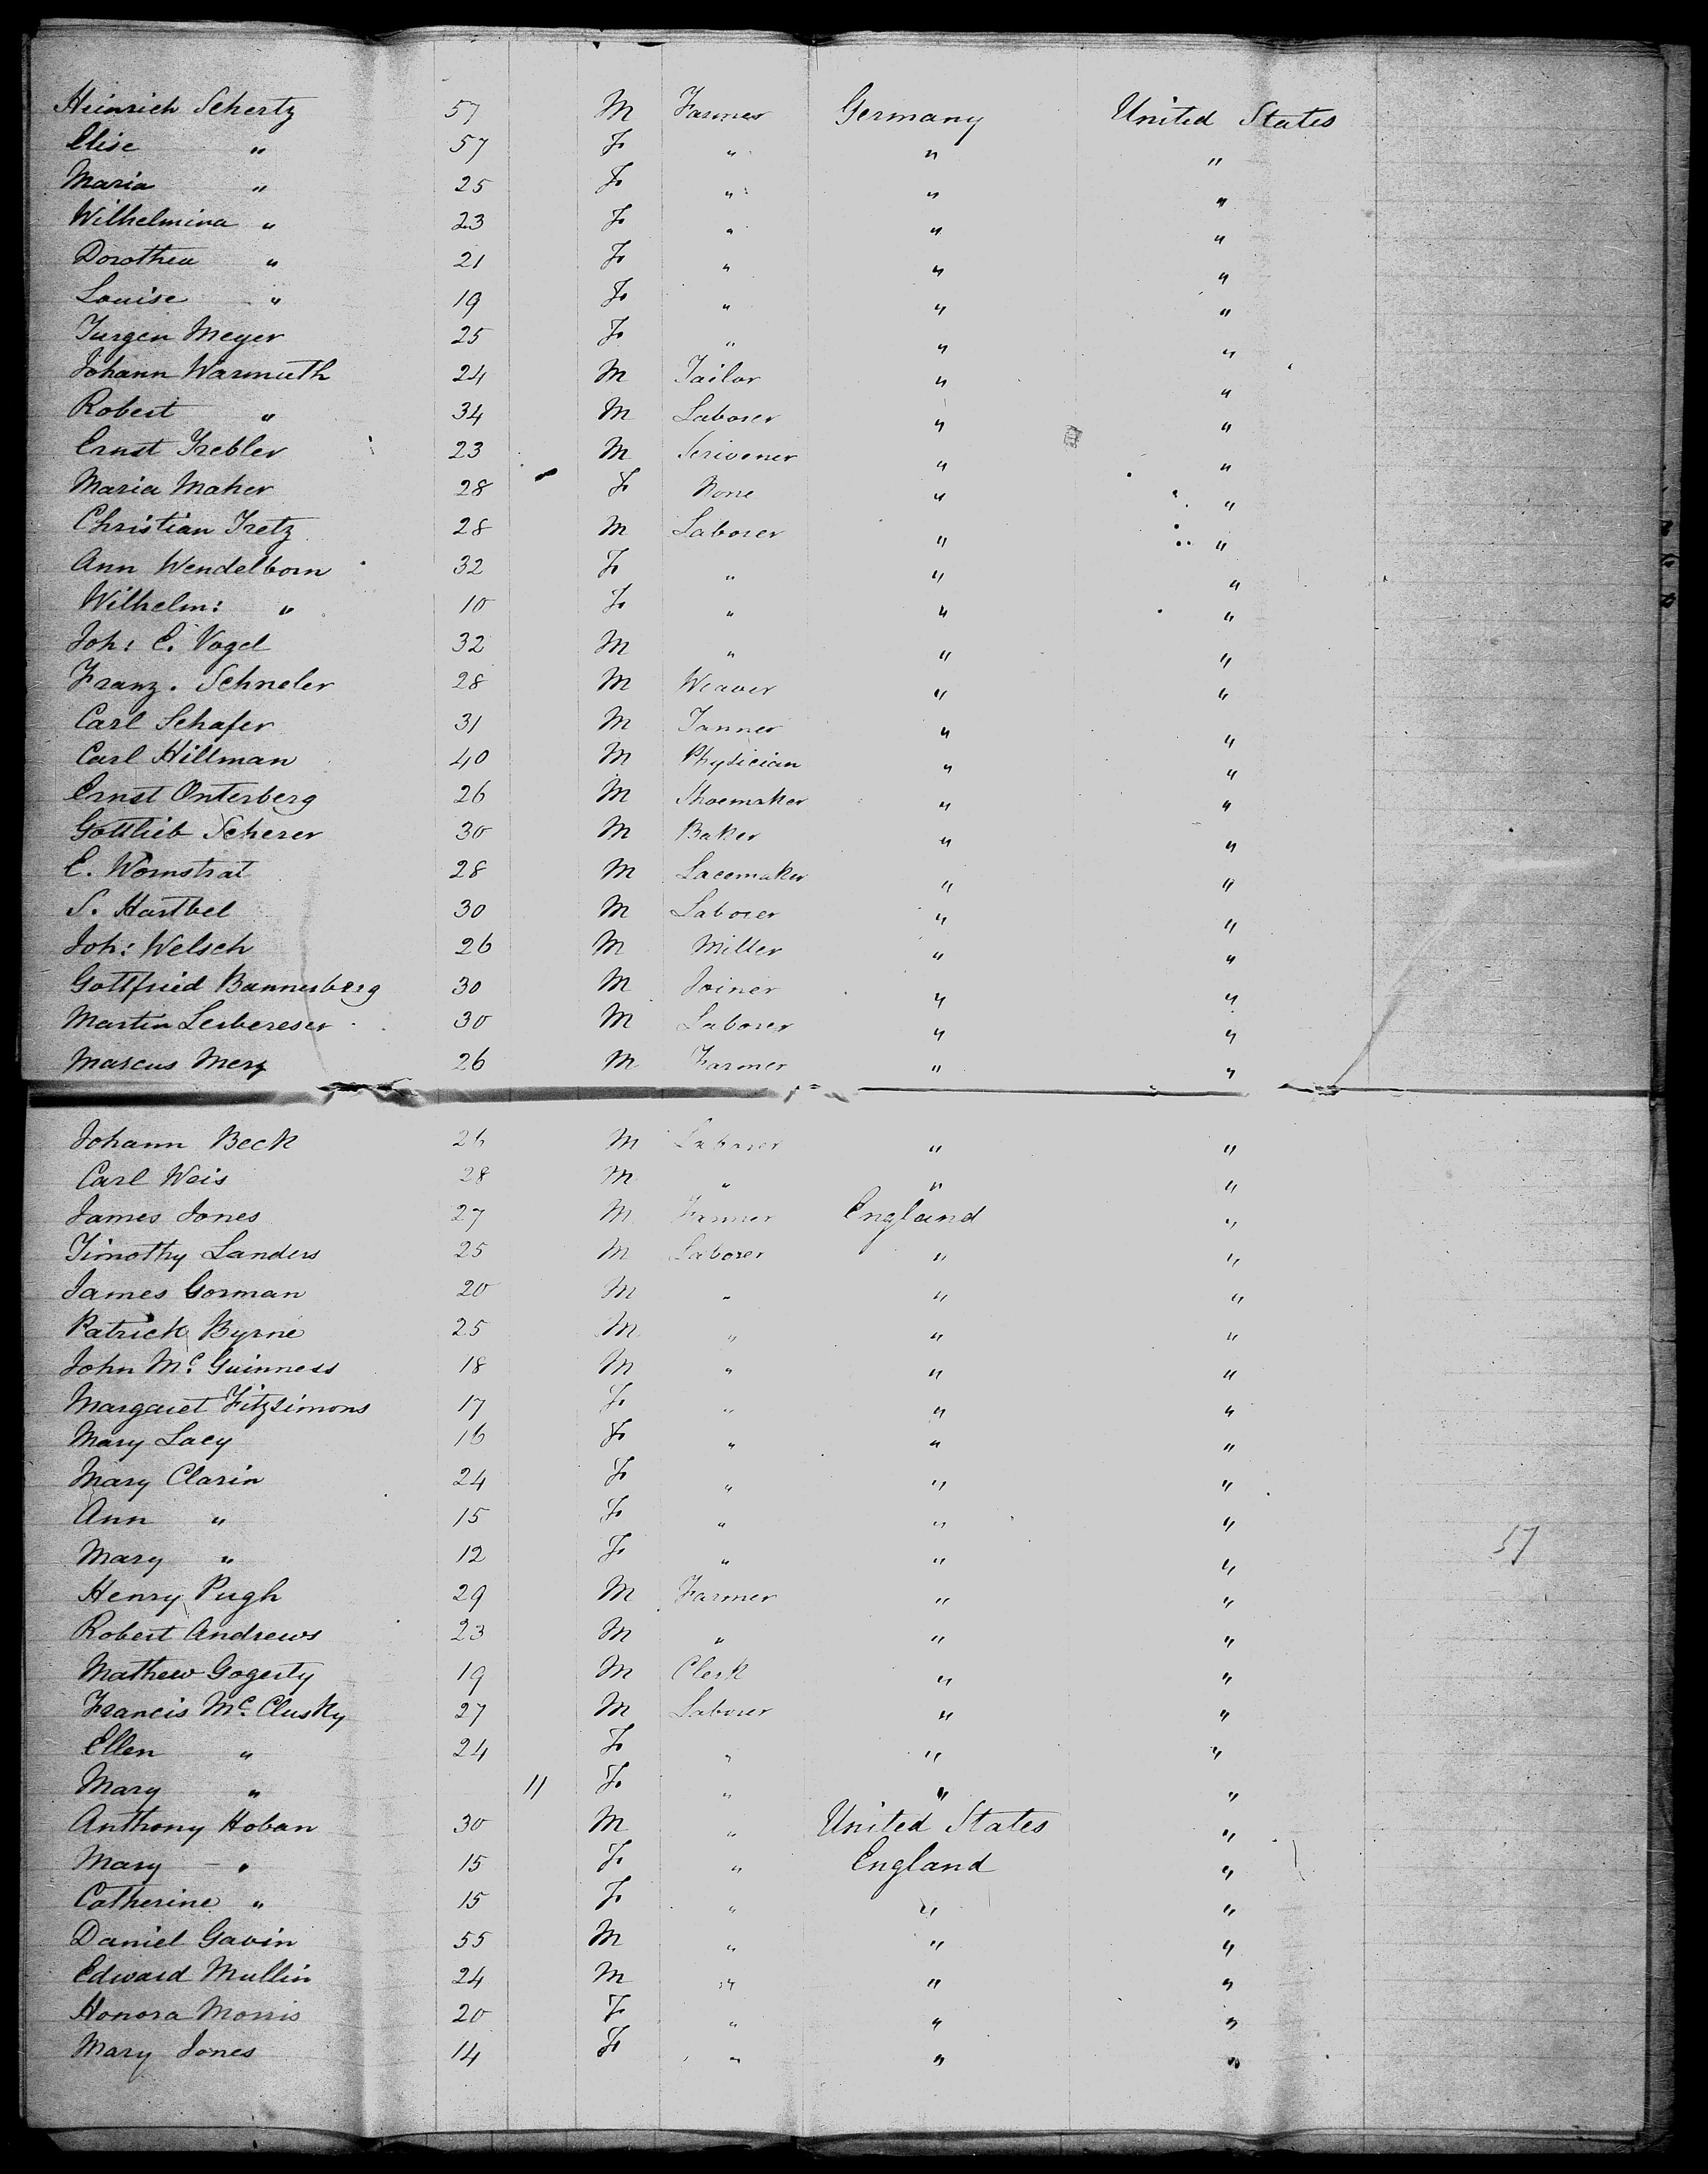 Heinrich Schertz 57 M Farmer Germany United States
Elise " 57 F. " " "
Maria " 25 F. " " "
Wilhelmina " 23 F. " " "
Dorothea " 21 F. " " "
Louise " 19 F. " " "
Jurgen Meyer 25 F. " " "
Johann Warmuth 24 M Tailor " "
Robert " 34 M Laborer " "
Ernst Trebler 23 M Scrivener " "
Maria Maher 28 F. None " "
Christian Tretz 28 M Laborer " "
Ann Wendelborn 32 F. " " "
Wilhelm: " 10 F. " " "
Joh: C. Vogel 32 M " " "
Franz. Schneler 28 M Weaver " "
Carl Schafer 31 M Tanner " "
Carl Hillman 40 M Physician " "
Ernst Onterberg 26 M Shoemaker " "
Gottlieb Scherer 30 M Baker " "
E. Wornstrat 28 M Lacemaker " "
S. Hartbel 30 M Laborer " "
Joh: Welsch 26 M Miller " "
Gottfried Bannesberg 30 M Joiner " "
Martin Lerbereser 30 M Laborer " "
Marcus Merz 26 M Farmer " "
Johann Beck 26 M Laborer " "
Carl Weis 28 M " " "
James Jones 27 M Farmer England "
Timothy Landers 25 M Laborer " "
James Gorman 20 M " " "
Patrick Byrne 25 M " " "
John Mc. Guinness 18 M " " "
Margaret Fitzsimons 17 F. " " "
Mary Lacy 16 F. " " "
Mary Clarin 24 F. " " "
Ann " 15 F. " " "
Mary " 12 F. " " "
Henry Pugh 29 M Farmer " "
Robert Andrews 23 M " " "
Mathew Gogerty 19 M Clerk " "
Francis Mc. Clusky 27 M Laborer " "
Ellen " 24 F. " " "
Mary " 11 F. " " "
Anthony Hoban 30 M " United States "
Mary - " 15 F. " England "
Catherine " 15 F. " " "
Daniel Gavin 55 M " " "
Edward Mullin 24 M " " "
Honora Morris 20 F. " " "
Mary Jones 14 F. " " "